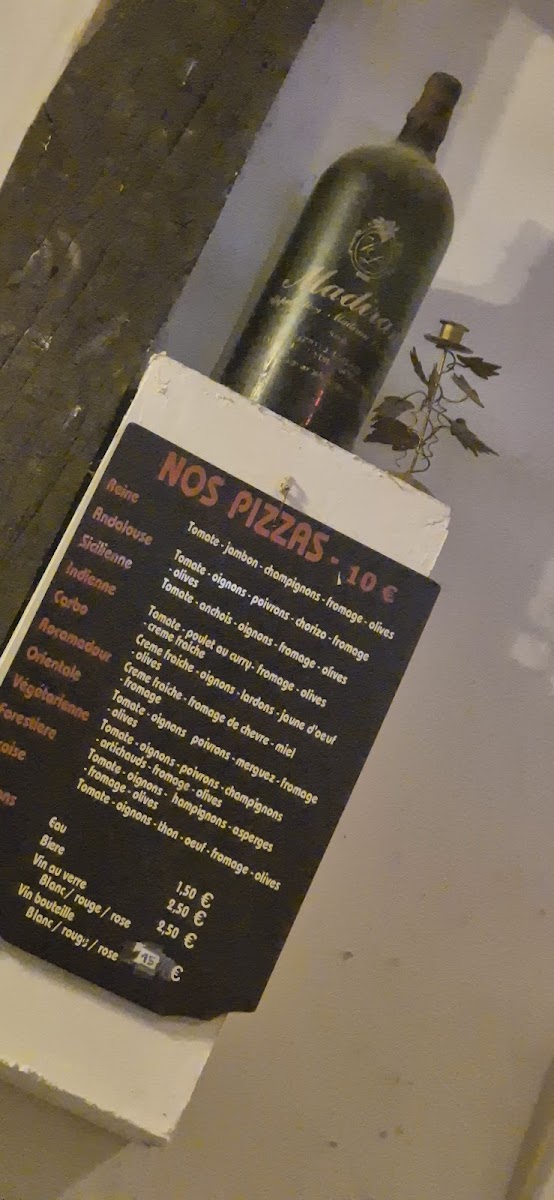 Madira
NOS PIZZAS - 10 €
Reine Tomate - jambon - champignons - fromage - olives
Andalouse Tomate - oignons - poivrons - chorizo - fromage
- olives
Sicilienne Tomate - anchois - oignons - fromage - olives
Indienne Tomate - poulet au curry - fromage - olives
- creme fraiche
Carbo Creme fraiche - oignons - lardons - jaune d'oeuf
- olives
Rocamadour Creme fraiche - fromage de chevre - miel
- fromage
Orientale Tomate - oignons poivrons - merguez - fromage
- olives
Végétarienne Tomate - oignons - poivrons - champignons
- artichauds - fromage - olives
Forestiere Tomate - oignons - hampignons - asperges
- fromage - olives
çoise Tomate - oignons - thon - oeuf - fromage - olives
ons
Eau 1.50 €
Biere 2,50 €
Vin au verre
Blanc / rouge / rose 2,50 €
Vin bouteille
Blanc / rouge / rose 15 €